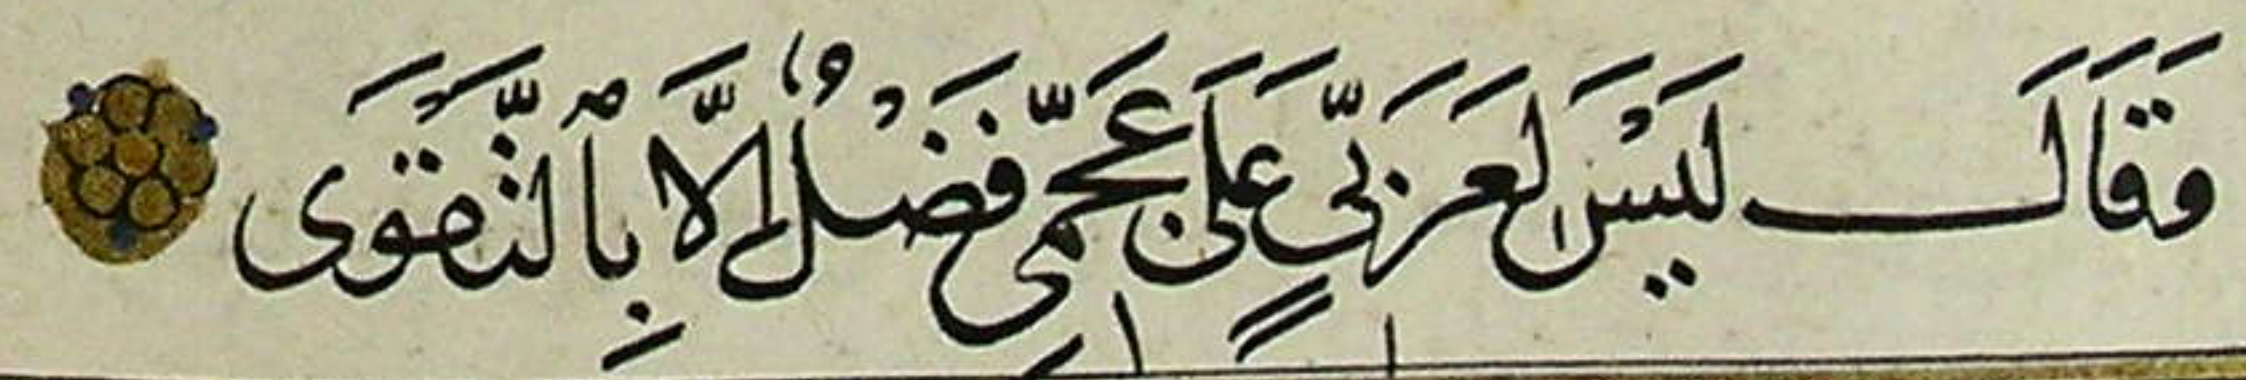 وَقَالَ لَيْسَ لِعَرَبِيٍّ عَلَى عَجَمِيٍّ فَضْلٌ إِلَّا بِٱلتَّقْوَى